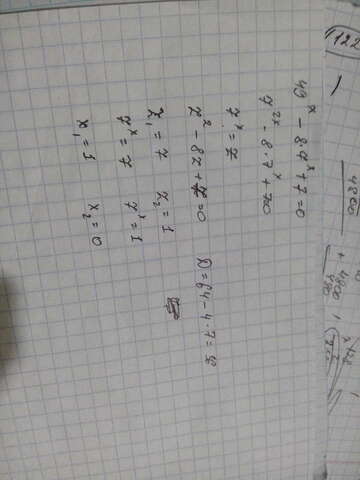 49ˣ - 8·7ˣ + 7 = 0
7²ˣ - 8·7ˣ + 7=0
7ˣ = z
z² - 8z + 7 = 0 D = 64 - 4·7 = 36
z₁ = 7 z₂ = 1
7ˣ = 7 7ˣ = 1
x₁ = 1 x₂ = 0
122
4800